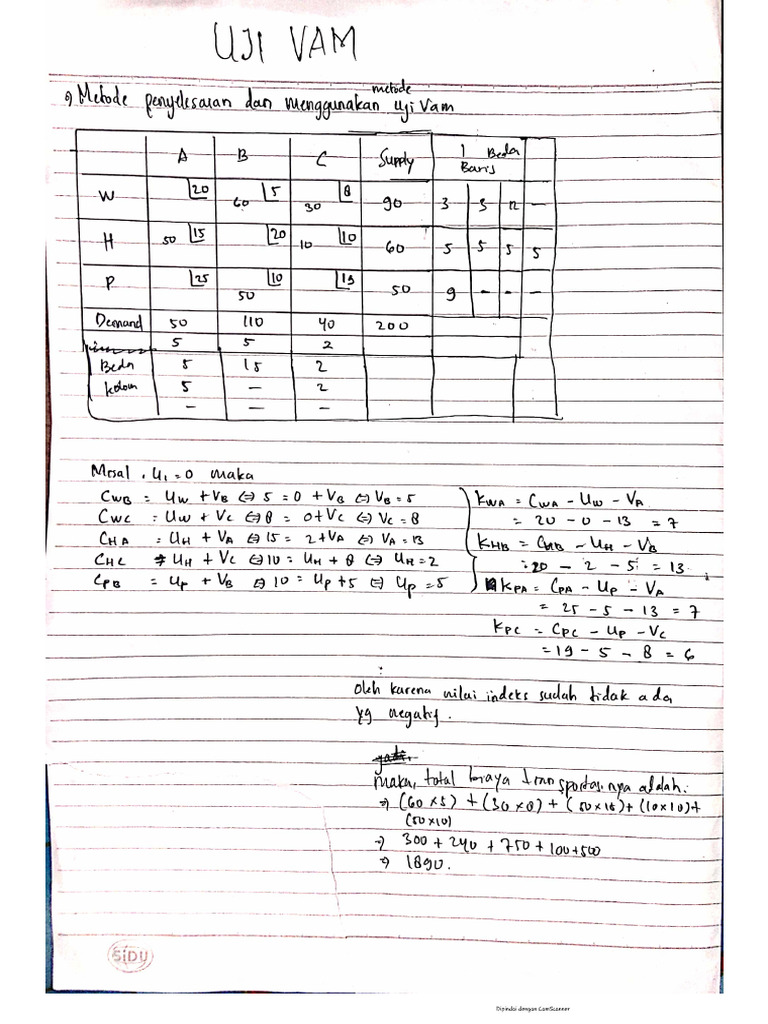 UJI VAM
metode
→) Metode penyelesaian dan menggunakan uji Vam
A B C Supply 1 Beda Baris
W 20 60 5 30 8 90 3 3 12 -
H 50 15 20 10 10 60 5 5 5 5
P 25 50 10 19 50 9 - - -
Demand 50 110 40 200
5 5 2
Beda 5 15 2
Kolom 5 - 2
- - -
Misal, U₁ = 0 maka
CWB = UW + VB ⇔ 5 = 0 + VB ⇔ VB = 5
CWC = UW + VC ⇔ 8 = 0 + VC ⇔ VC = 8
CHA = UH + VA ⇔ 15 = 2 + VA ⇔ VA = 13
CHC = UH + VC ⇔ 10 = UH + 8 ⇔ UH = 2
CPB = UP + VB ⇔ 10 = UP + 5 ⇔ UP = 5
KWA = CWA - UW - VA
= 20 - 0 - 13 = 7
KHB = CHB - UH - VB
= 20 - 2 - 5 = 13
KPA = CPA - UP - VA
= 25 - 5 - 13 = 7
KPC = CPC - UP - VC
= 19 - 5 - 8 = 6
Oleh karena nilai indeks sudah tidak ada
yg negatif.
maka, total biaya transportasinya adalah.
⇒ (60 × 5) + (30 × 8) + (50 × 15) + (10 × 10) +
(50 × 10)
⇒ 300 + 240 + 750 + 100 + 500
⇒ 1890.
SiDU
Dipindai dengan CamScanner